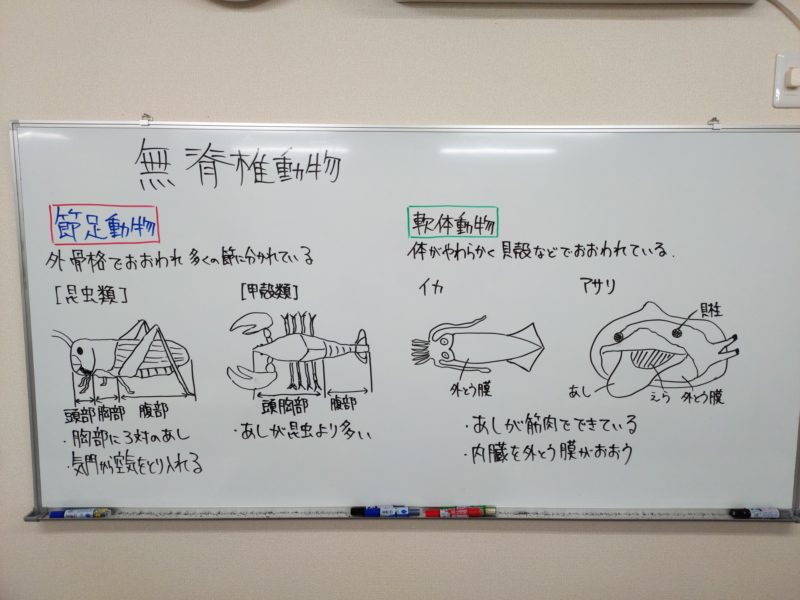 無脊椎動物
節足動物
外骨格でおおわれ多くの節に分かれている
[昆虫類]
頭部 胸部 腹部
・胸部に3対のあし
・気門から空気をとり入れる
[甲殻類]
頭胸部 腹部
・あしが昆虫より多い
軟体動物
体がやわらかく貝殻などでおおわれている.
イカ
外とう膜
アサリ
貝柱
あし えら 外とう膜
・あしが筋肉でできている
・内臓を外とう膜がおおう